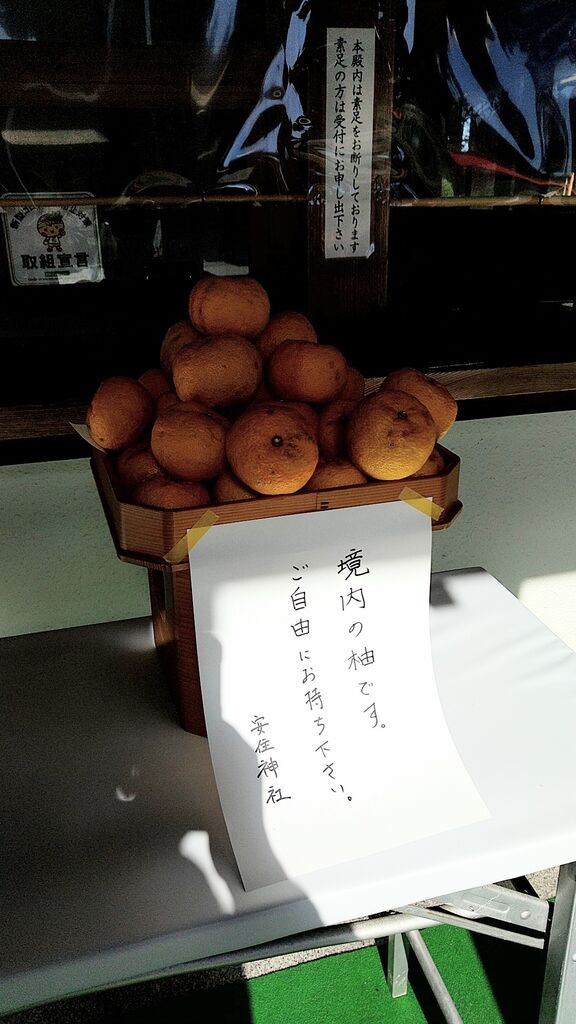 本殿内は素足をお断りしております
素足の方は受付にお申し出下さい
取組宣言
境内の柚です。
ご自由にお持ち下さい。
安住神社